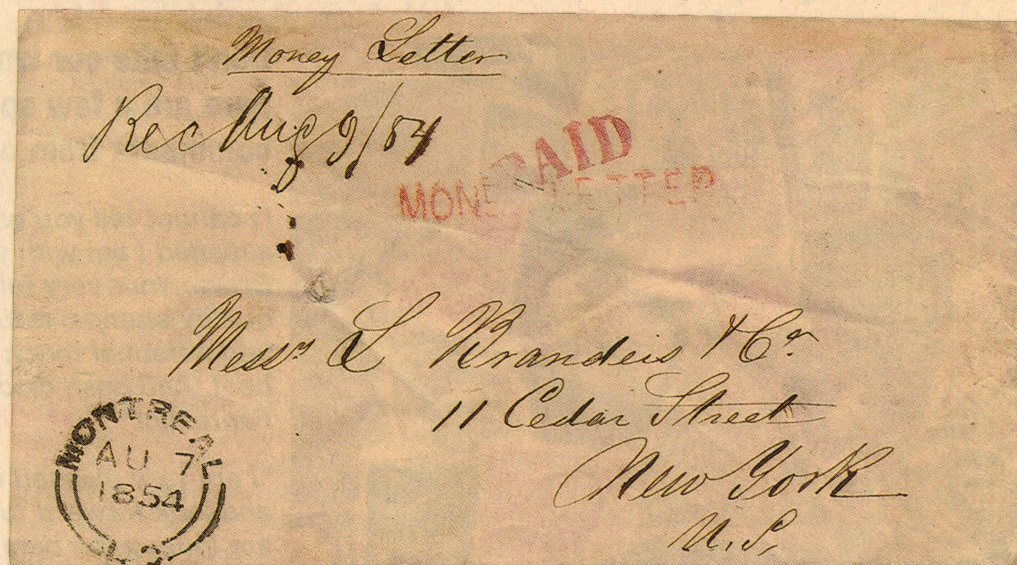 Money Letter
Rec Aug 9/54
PAID
MONEY LETTER
Mess<sup>rs</sup> L Brandeis & Co.
11 Cedar Street
New York
U.S.
MONTREAL
AU 7
1854
L.C.